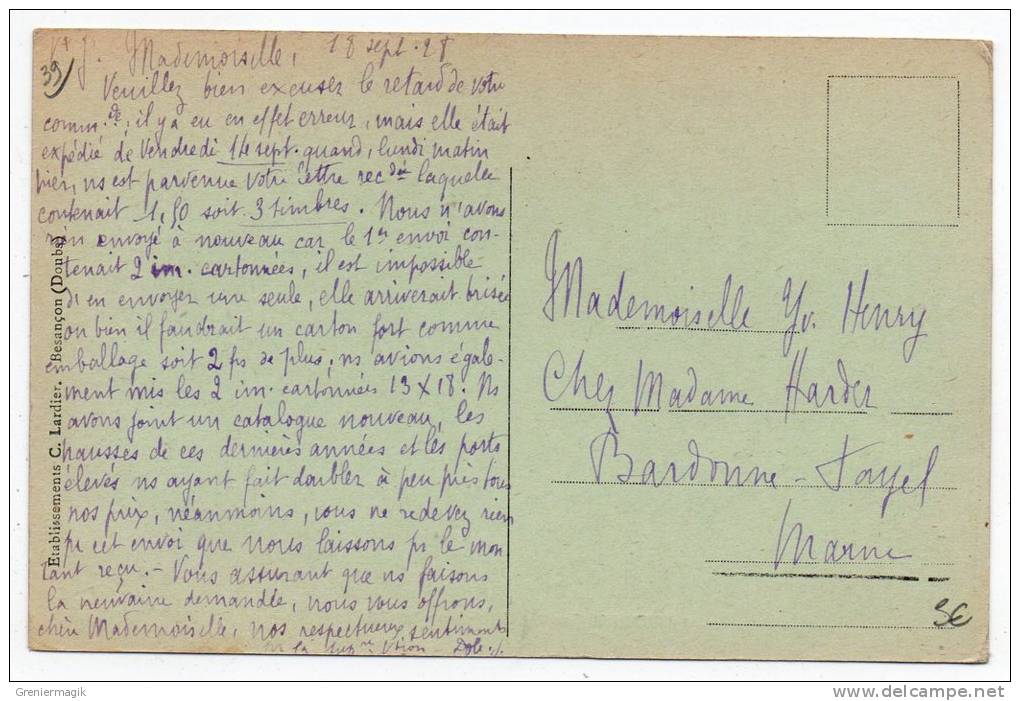 V + J. Mademoiselle, 18 sept. 28
39
Veuillez bien excuser le retard de votre
comm.de, il y a eu en effet erreur, mais elle était
expédié de Vendredi 14 sept. quand, lundi matin
hier, ns est parvenue votre lettre rec dée laquelle
contenait 1,50 soit 3 timbres. Nous n'avons
rien envoyé à nouveau car le 1er envoi con-
tenait 2 im. cartonnées, il est impossible
d'en envoyer une seule, elle arriverait brisée
ou bien il faudrait un carton fort comme
emballage soit 2 frs de plus, ns avions égale-
ment mis les 2 im. cartonnées 13 X 18. Ns
avons joint un catalogue nouveau, les
hausses de ces dernières années et les ports
élevés ns ayant fait doubler à peu près tous
nos prix, néanmoins, vous ne redevez rien
pr cet envoi que nous laissons pr le mon
tant reçu. - Vous assurant que ns faisons
la neuvaine demandée, nous vous offrons,
chère Mademoiselle, nos respectueux sentiments
Dole
Etablissements C. Lardier. - Besançon (Doubs)
Mademoiselle Yv. Henry
Chez Madame Harder
Bardonne - Fayel
Marne
3€
Greniermagik
www.delcampe.net